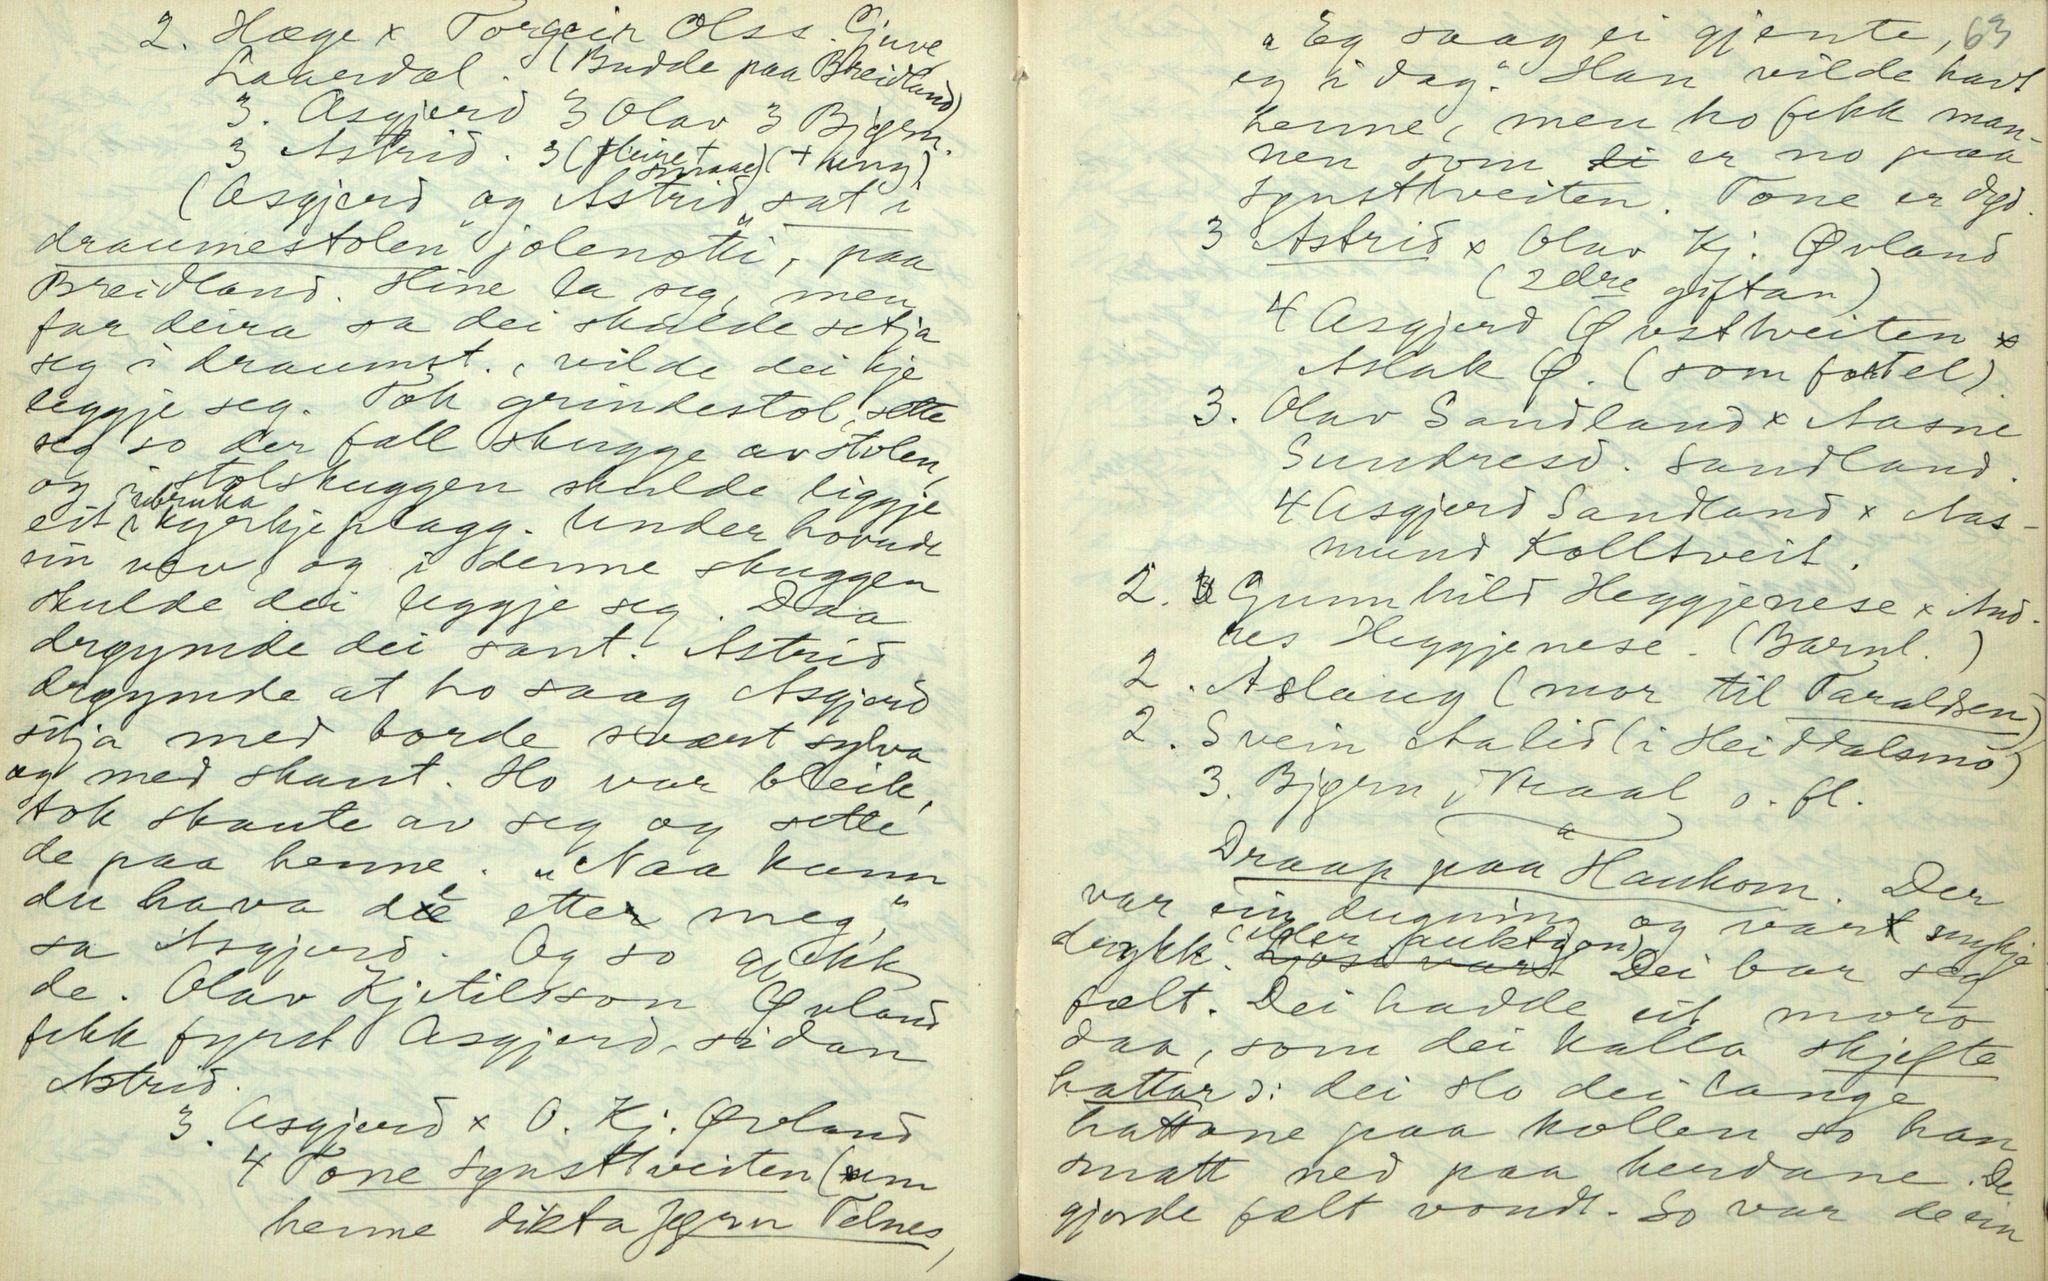 2. Hæge x Torgeir Olss. Gjuve
Laaerdal. (Budde paa Breidland)
3. Asgjerd 3 Olav 3 Bjørn.
3 Astrid. 3 (fleire + smaae) (+ ung)
(Asgjerd og Astrid "sat i
draumestolen" jolenotti, paa
Breidland. Hine la seg, men
far deira sa dei skulde setja
seg i draumst., vilde dei kje
leggje seg. Tok grindestol, sette
seg so der fall skugge av stolen,
og i stolskuggen skulde liggje
eit ubruka kyrkjeplagg. Under hovude
sin vev, og i denne skuggen
skulde dei leggje seg. Daa
drøymde dei sant. Astrid
drøymde at ho saag Asgjerd
sitja med borde svært sylva
og med skaut. Ho var bleik,
tok skaute av seg og sette
de paa henne. "Naa kann
du hava de etter meg,"
sa Asgjerd. Og so gjekk
de. Olav Kjetilsson Øvland
fekk fyrst Asgjerd, sidan
Astrid.
3. Asgjerd x O. Kj. Øvland
4 Tone Synsttveiten (um
henne dikta Jørn Telnes,
63
"Eg saag ei gjente,
eg i dag". Han vilde havt
henne, men ho fekk man-
nen som er no paa
Synsttveiten. Tone er dø̸d.
3 Astrid x Olav Kj. Øvland
(2dre giftan)
4 Asgjerd Øvsttveiten x
Aslak Ø. (som fortel)
3. Olav Sandland x Aasne
Sundresd. Sandland.
4 Asgjerd Sandland x Aas-
mund Kolltveit.
2. Gunnhild Heggjenese x And-
res Heggjenese. (Barnl.)
2. Aslaug (mor til Taraldsen)
2. Svein Aalid (i Heiddalsmo)
3. Bjørn, Vraal o. fl.
Draap paa Haukom. Der
var ein dugning og vart mykje
drykk. (eller auktjon) Dei bar seg
fælt. Dei hadde eit moro
daa, som dei kalla skjefte
hattar ɔ: dei slo dei lange
hattane paa kollen so han
smatt ned paa herdane. De
gjorde fælt vondt. So var de ein